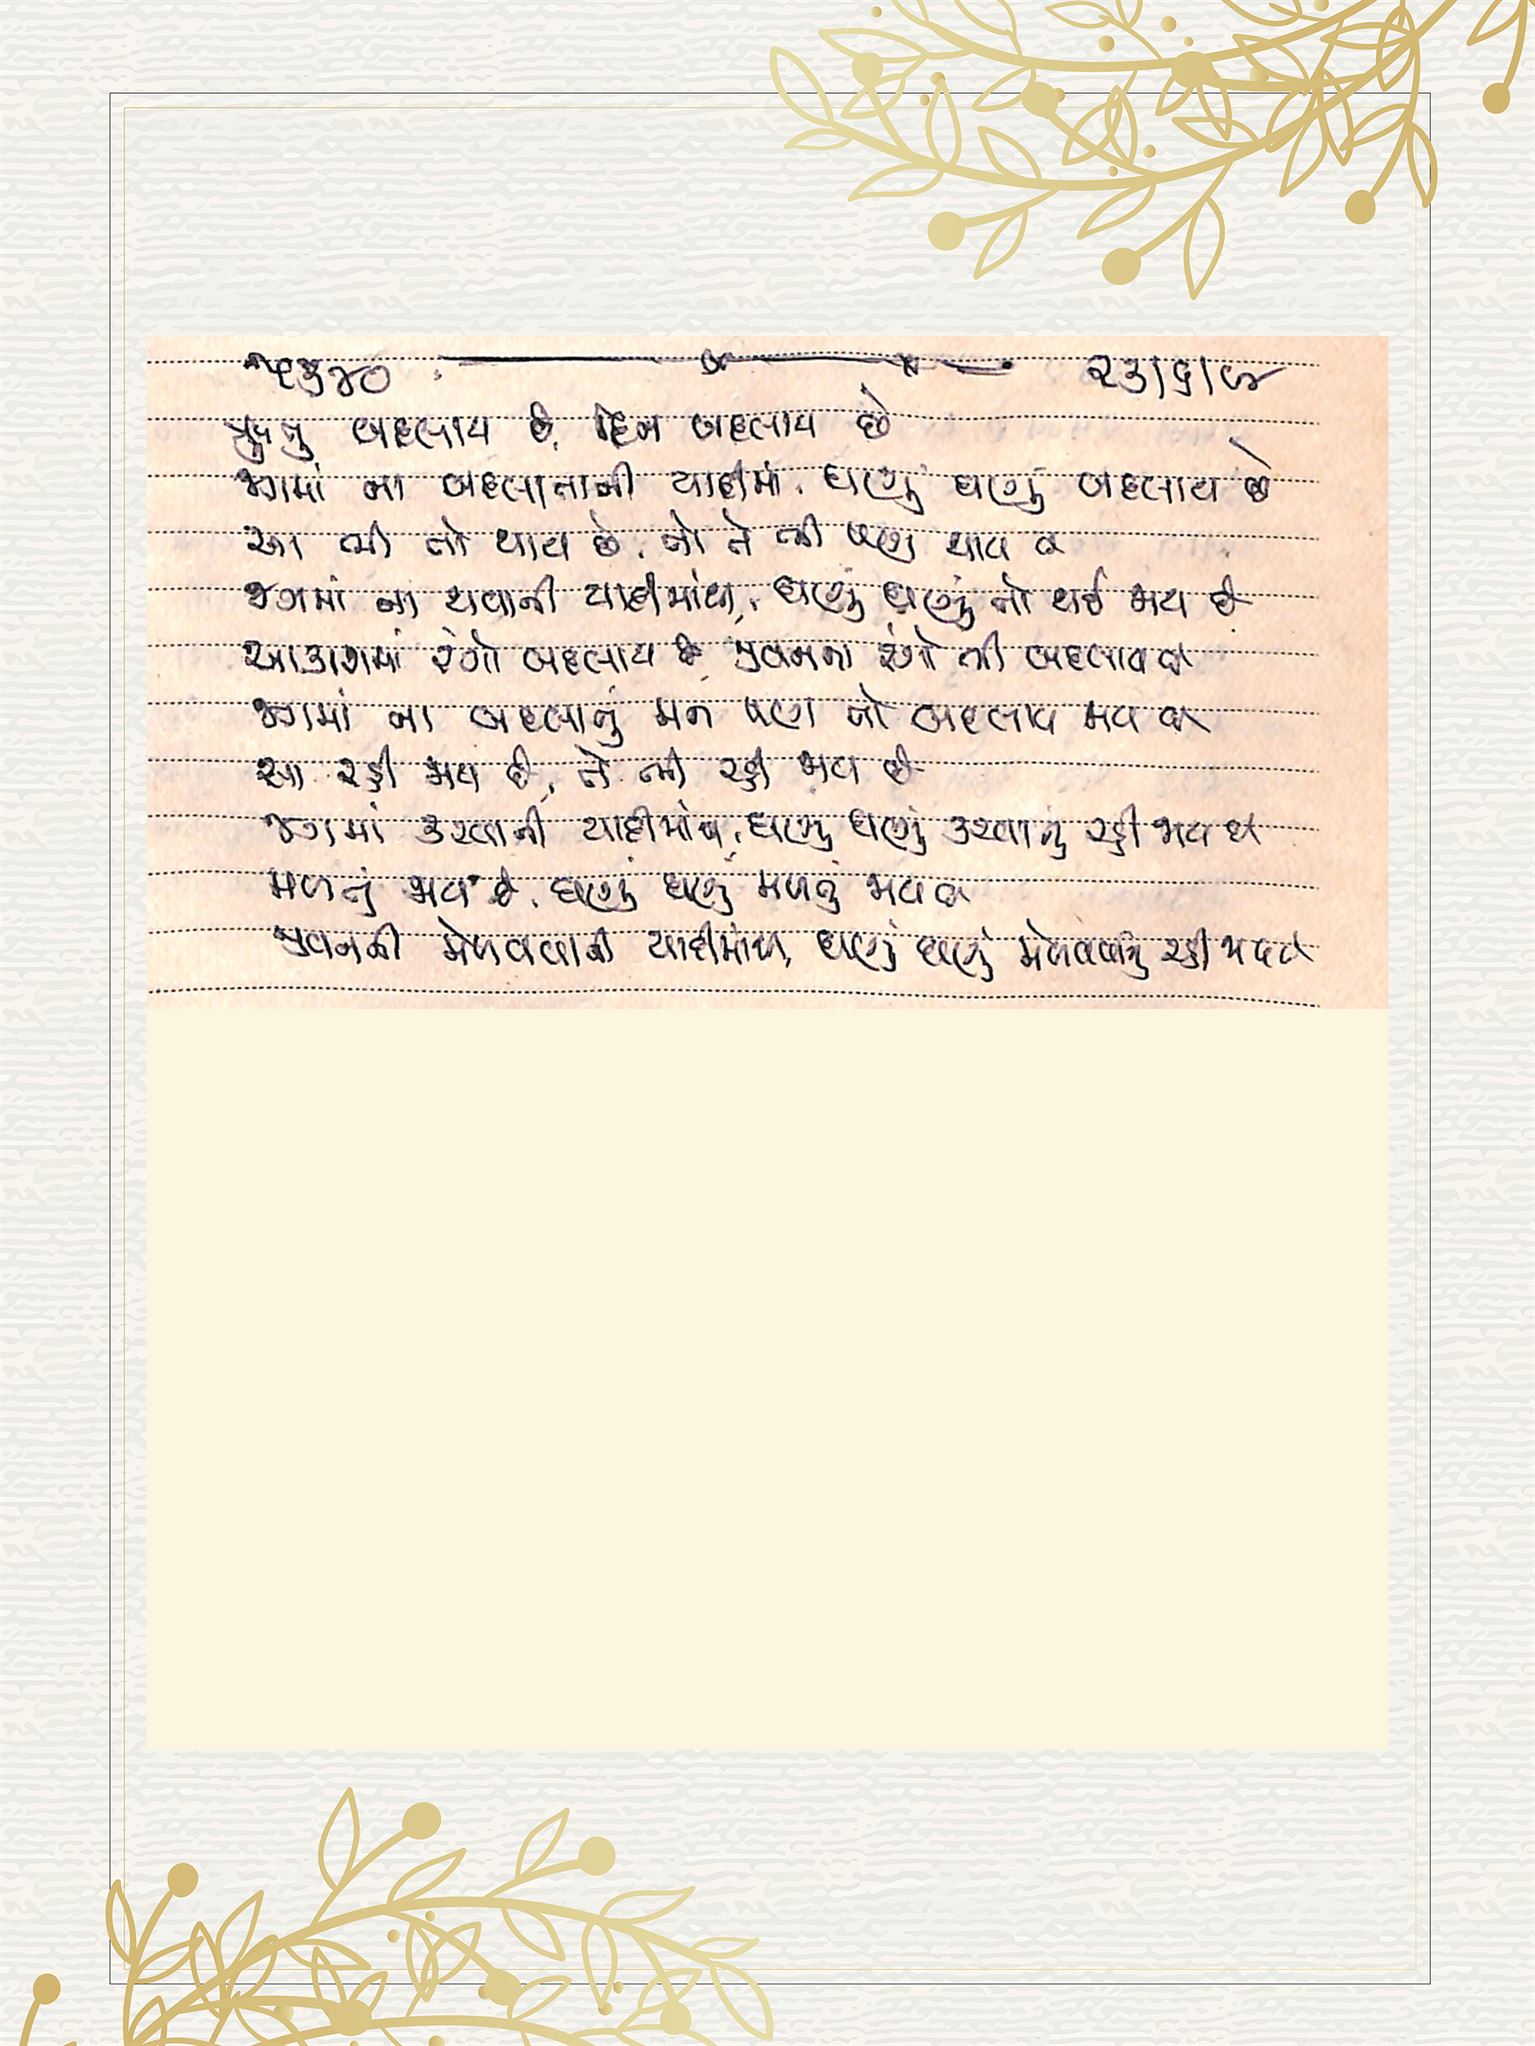 ૨૩/૬/૯૪
ઋતુ બદલાય છે, દિન બદલાય છે
જગમાં ના બદલાતાની યાદીમાં, ઘણું ઘણું બદલાય છે
આ ભી તો થાય છે, જો તે ભી પણ થાય છે
જગમાં ના થવાની યાદીમાંથી, ઘણું ઘણું તો થઈ જાય છે
આકાશમાં રંગો બદલાય છે, જીવનના રંગો ભી બદલાય છે
જગમાં ના બદલાતું મન પણ તો બદલાઈ જાય છે
આ રહી જાય છે, તે ભી રહી જાય છે
જગમાં કરવાની યાદીમાંથી, ઘણું ઘણું કરવાનું રહી જાય છે
મળતું જાય છે, ઘણું ઘણું મળતું જાય છે
જીવનની મેળવવાની યાદીમાંથી, ઘણું ઘણું મેળવવાનું રહી જાય છે